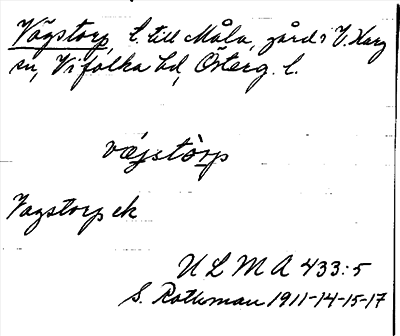 Vägstorp, l. till Måla, gård i V. Harg
sn, Vifolka hd, Österg. l.
væjstòrp
Vagstorp ek
U L M A 433:5
S. Rothman 1911-14-15-17